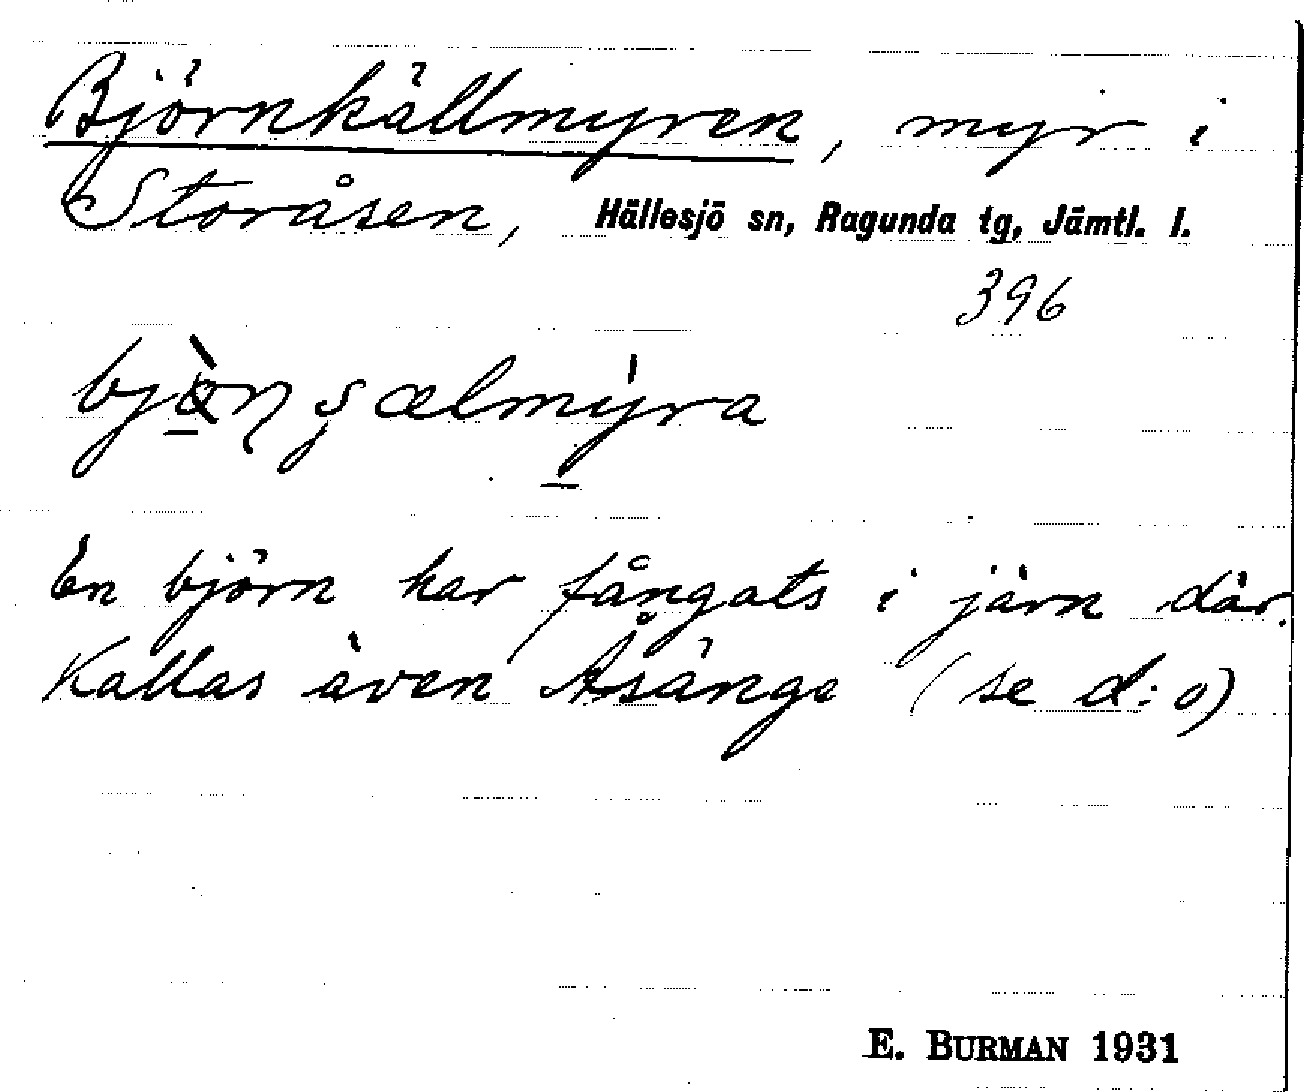 Björnkällmyren, myr i
Storåsen, Hällesjö sn, Ragunda tg, Jämtl. l.
396
En björn har fångats i järn där.
Kallas även Åsänge (se d:o)
E. BURMAN 1931